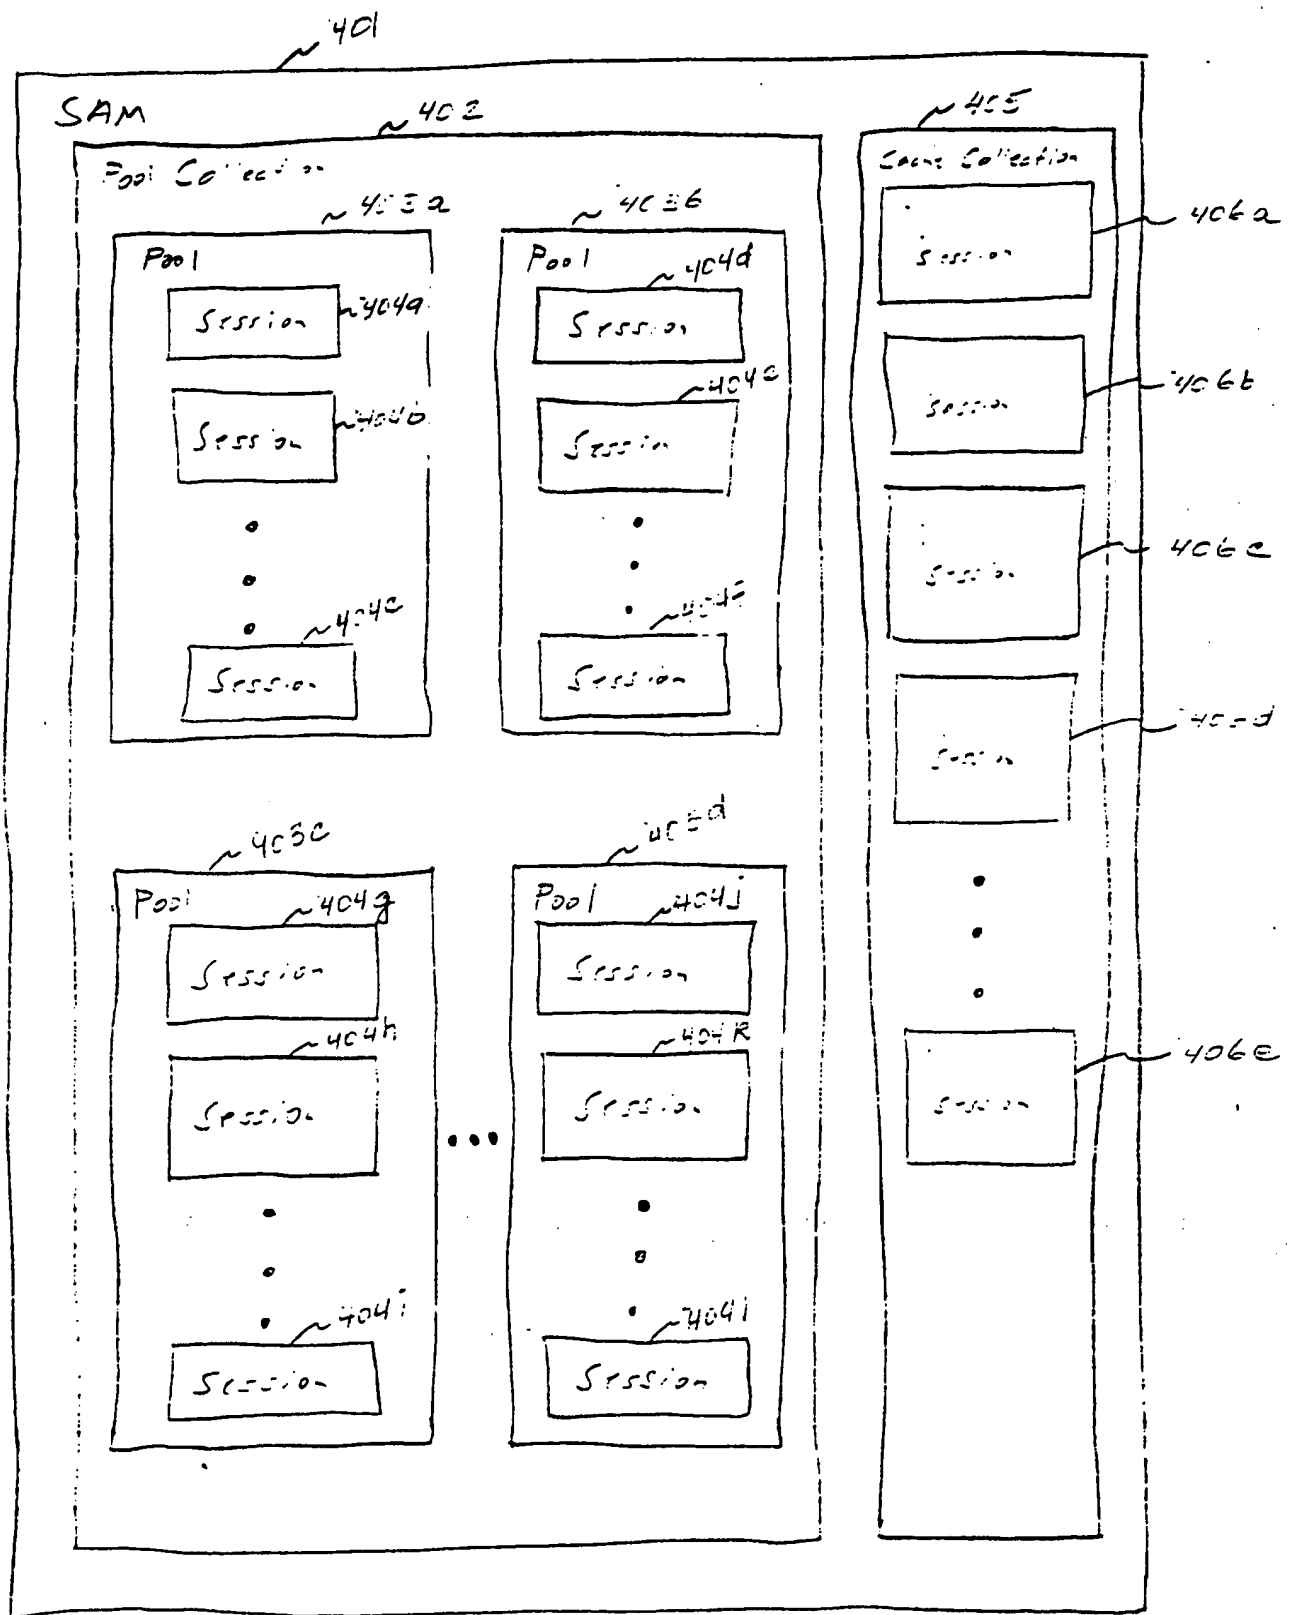 401
SAM
402
Pool Collection
403a
Pool
Session
404a
Session
404b
404c
Session
403b
Pool
404d
Session
404e
Session
404f
Session
403c
Pool
404g
Session
404h
Session
404i
Session
403d
Pool
404j
Session
404k
Session
404l
Session
405
Cache Collection
Session
406a
Session
406b
Session
406c
Session
406d
Session
406e